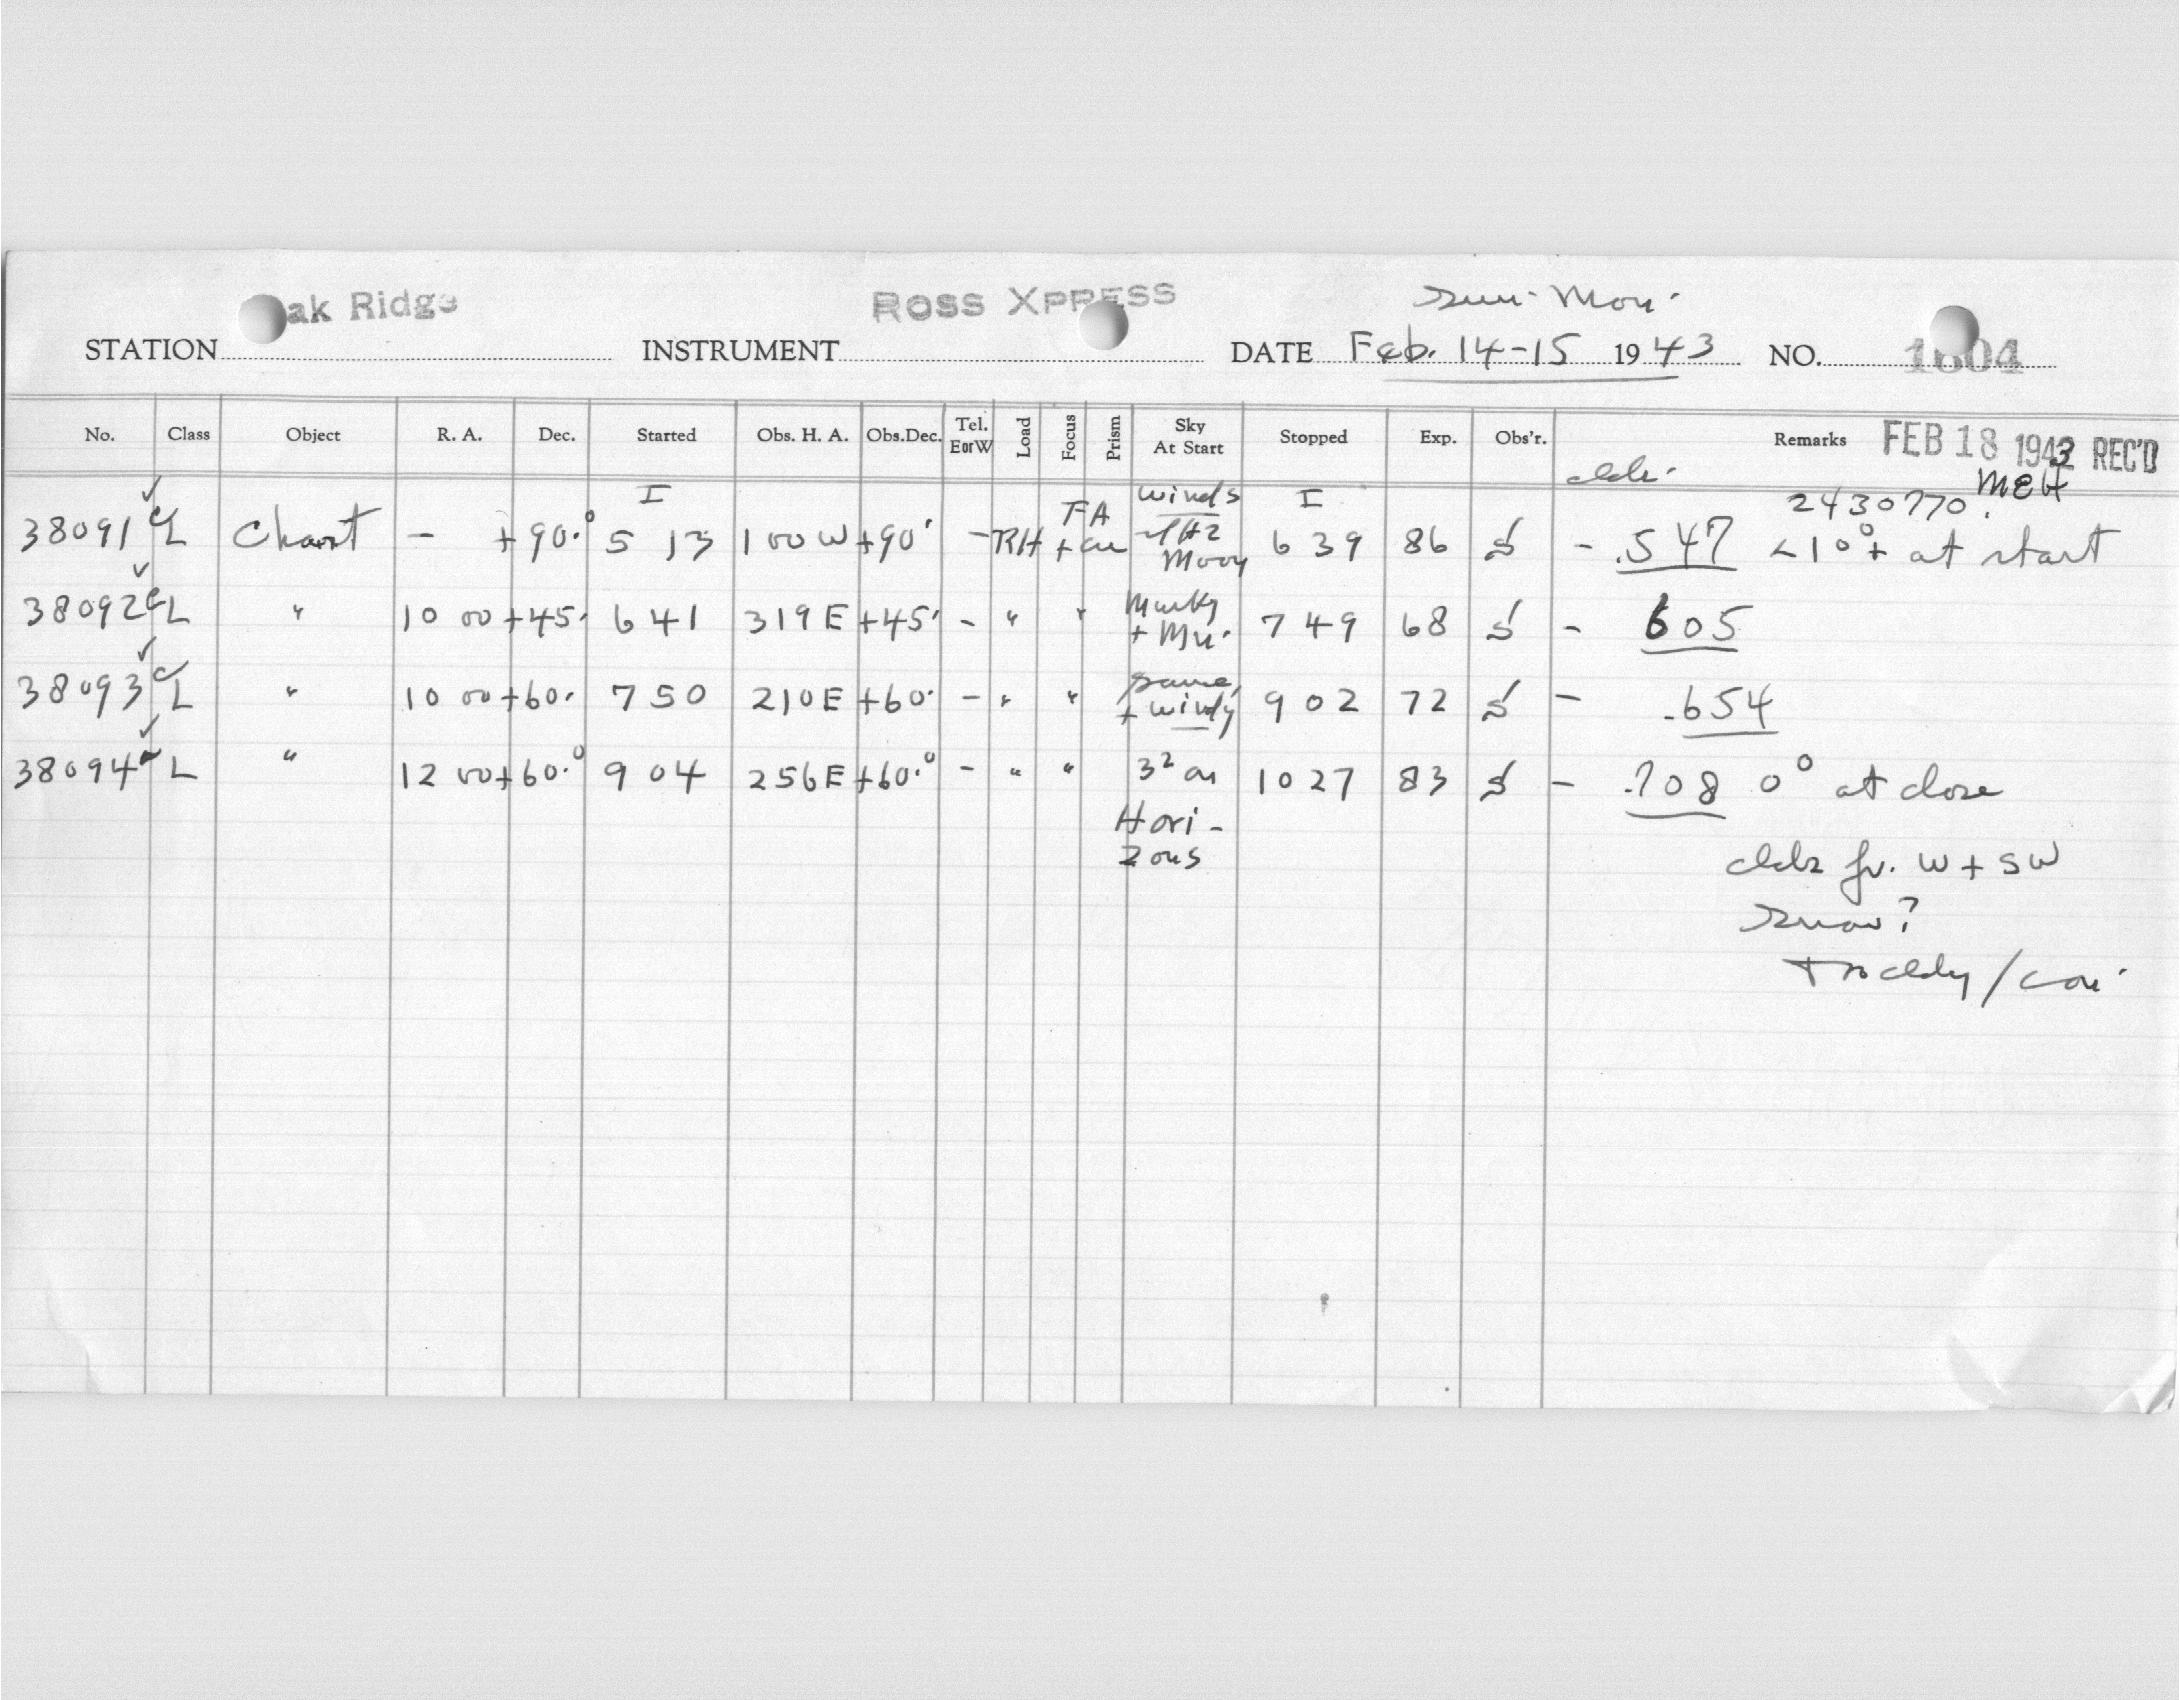 ak Ridge
ROSS XPRESS
Sun. Mon.
STATION INSTRUMENT DATE Feb. 14-15 1943 NO. 1804
No. Class Object R. A. Dec. Started Obs. H. A. Obs.Dec. Tel. E or W Load Focus Prism Sky At Start Stopped Exp. Obs'r. Remarks FEB 18 1943 REC'D
I winds I 2430770. MEH
38091 L Chart - +90.° 5 13 1 00 W +90. - RH FA + Moon 6 39 86 - .547 <10°+ at start
38092 L " 10 00 +45. 6 41 3 19 E +45. - " " Murky + Mn. 7 49 68 - 605
38093 L " 10 00 +60. 7 50 2 10 E +60. - " " same, + windy 9 02 72 - .654
38094 L " 12 00 +60.° 9 04 2 56 E +60.° - " " 3² on 10 27 83 - .708 0° at close
Hori-
zons
clds fr. W + SW
Snow?